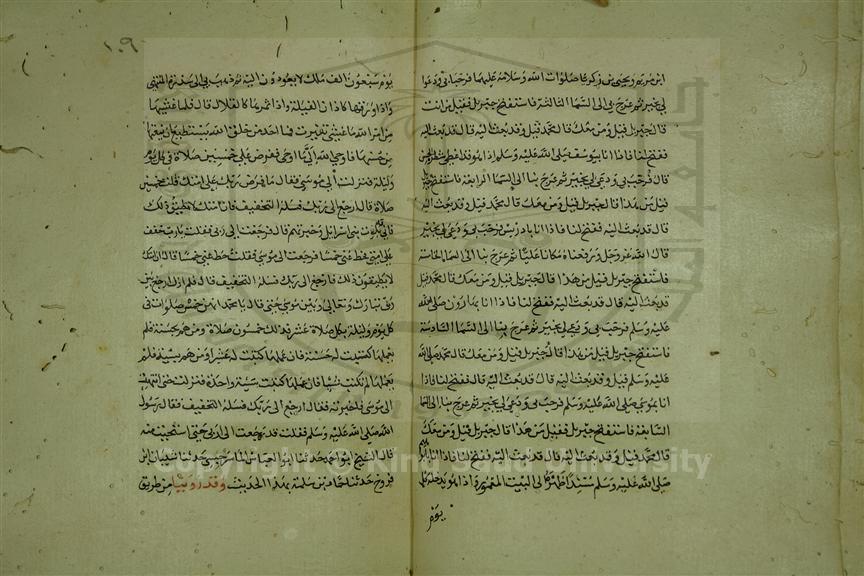 ابن مريم ويحيى بن زكريا صلوات الله وسلامه عليهما فرحبا بي ودعوا
لي بخير ثم عرج بي الى السما الثالثة فاستفتح جبريل فقيل من انت
قال جبريل قيل ومن معك قال محمد قيل وقد بعث اليه قال قد بعث اليه
ففتح لنا فاذا انا بيوسف صلى الله عليه وسلم اذا هو قد اعطي شطر الحسن
قال فرحب بي ودعى لي بخير ثم عرج بنا الى السما الرابعة فاستفتح جبريل
قيل من هذا قال جبريل قيل ومن معك قال محمد قيل وقد بعث اليه
قال قد بعث اليه ففتح لنا فاذا انا بادريس فرحب بي ودعى لي بخير
قال الله عز وجل ورفعناه مكانا عليا ثم عرج بنا الى السما الخامسة
فاستفتح جبريل قيل من هذا قال جبريل قيل ومن معك قال محمد قيل
قد بعث اليه قال قد بعث اليه ففتح لنا فاذا انا بهارون صلى الله
عليه وسلم فرحب بي ودعى لي بخير ثم عرج بنا الى السما السادسة
فاستفتح جبريل قيل من هذا قال جبريل قيل ومن معك قال محمد صلى الله
عليه وسلم قيل وقد بعث اليه قال قد بعث اليه قال ففتح لنا فاذا
انا بموسى صلى الله عليه وسلم فرحب بي ودعى لي بخير ثم عرج بنا الى السما
السابعة فاستفتح جبريل فقيل من هذا قال جبريل قيل ومن معك
قال محمد قيل وقد بعث اليه قال قد بعث اليه ففتح لنا فاذا انا بابراهيم
صلى الله عليه وسلم مستندا ظهره الى البيت المعمور واذا هو يدخله كل
يوم
١٠٩
يوم سبعون الف ملك لا يعودون اليه ثم ذهب بي الى سدرة المنتهى
واذا ورقها كاذان الفيلة واذا ثمرها كالقلال قال فلما غشيها
من امر الله ما غشي تغيرت فما احد من خلق الله يستطيع ان ينعتها
من حسنها فاوحى الله الي ما اوحى ففرض علي خمسين صلاة في كل يوم
وليلة فنزلت الى موسى فقال ما فرض ربك على امتك قلت خمسين
صلاة قال ارجع الى ربك فسله التخفيف فان امتك لا يطيقون ذلك
فاني قد بلوت بني اسرائيل وخبرتهم قال فرجعت الى ربي فقلت يا رب خفف
على امتي فحط عني خمسا فرجعت الى موسى فقلت حط عني خمسا قال ان امتك
لا يطيقون ذلك فارجع الى ربك فسله التخفيف قال فلم ازل ارجع بين
ربي تبارك وتعالى وبين موسى حتى قال يا محمد انهن خمس صلوات في
كل يوم وليلة بكل صلاة عشر فذلك خمسون صلاة ومن هم بحسنة فلم
يعملها كتبت له حسنة فان عملها كتبت له عشرا ومن هم بسيئة فلم
يعملها لم تكتب شيا فان عملها كتبت سيئة واحدة فنزلت حتى انتهيت
الى موسى فاخبرته فقال ارجع الى ربك فسله التخفيف فقال رسول
الله صلى الله عليه وسلم فقلت قد رجعت الى ربي حتى استحييت منه
قال الشيخ ابو احمد حدثنا ابو العباس الماسرجسي حدثنا شيبان ابن
فروخ حدثنا حماد بن سلمة بهذا الحديث وقد روينا من طريق
Copyright © King Saud University